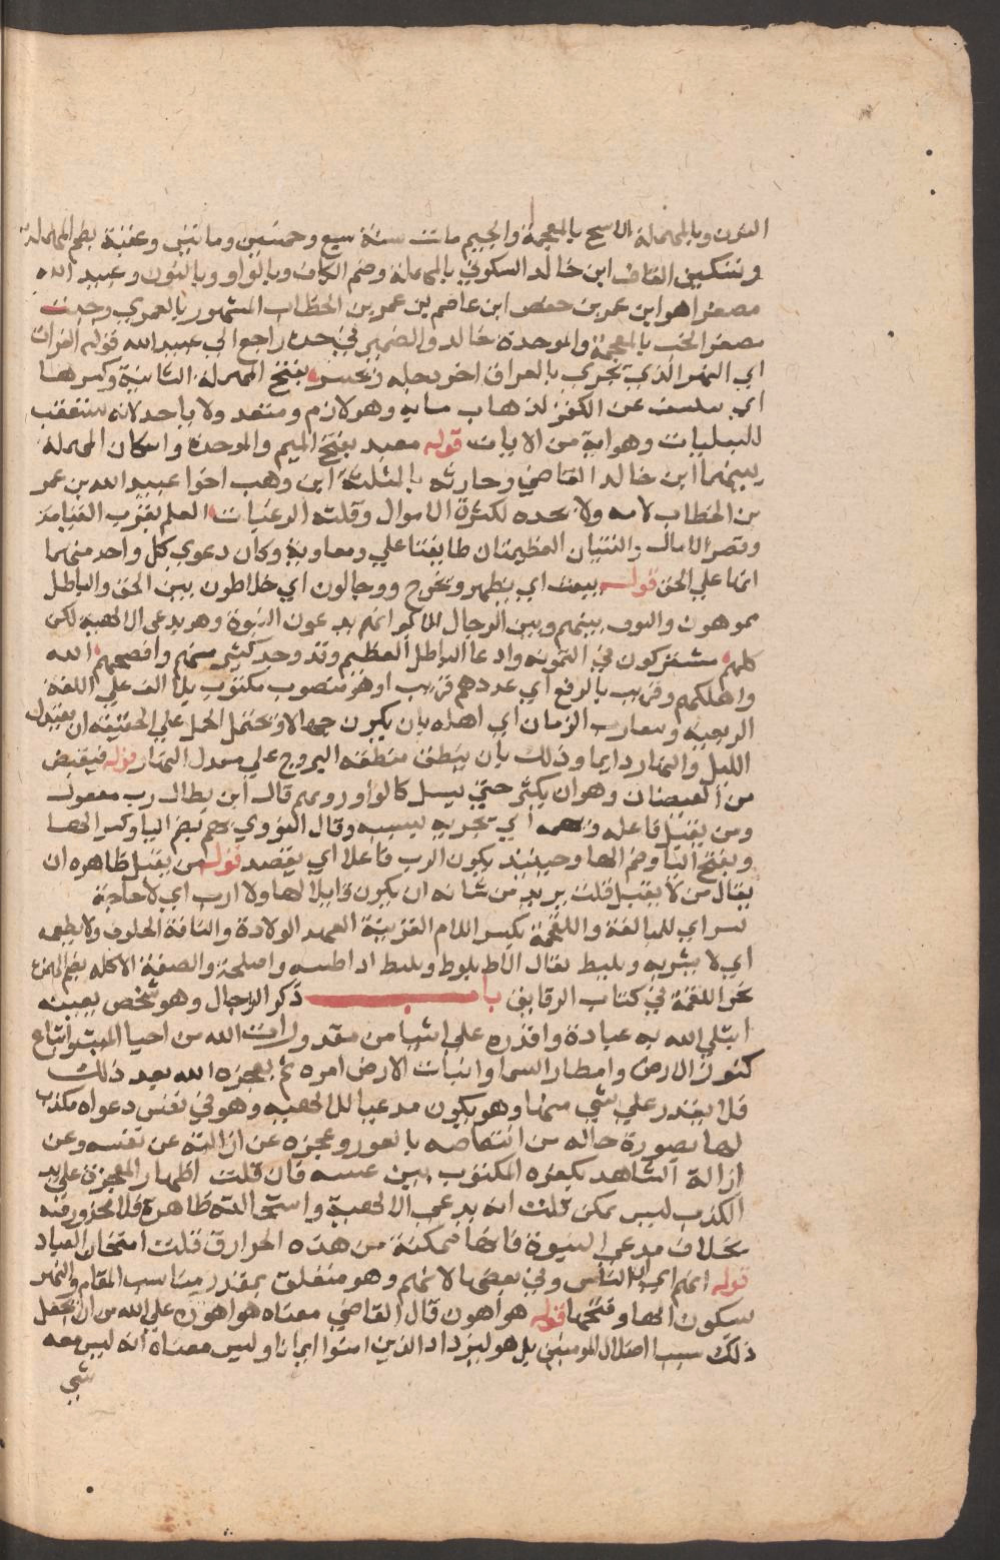 النون وبالمهملة الاشج بالمعجمة والجيم مات سنة سبع وخمسين وماتين وعقبة بضم المهملة
وتسكين القاف ابن خالد السكوني بالمهملة وضم الكاف وبالواو وبالنون وعبيد الله
مصغرا هو ابن عمر بن حفص ابن عاصم بن عمر بن الخطاب المشهور بالعمري وخبيب
مصغر الخب بالمعجمة والموحدة خالد والضمير في جده راجع الي عبيد الله قوله الفرات
اي النهر الذي يجري بالعراق اخر بحله ويحسر بفتح المهملة الثانية وكسرها
اي ينكشف عن الكنز لذهاب مايه وهو لازم ومتعد ولا ياخد لانه مستعقب
للبليات وهو اية من الايات قوله معبد بفتح الميم والموحدة واسكان المهملة
بينهما ابن خالد القاضي وحارثة بالمثلثة ابن وهب اخوا عبيد الله بن عمر
بن الخطاب لامه ولا يجده لكثرة الاموال وقلت الرغبات للعلم بقرب القيامة
وقصر الامال والفئتان العظيمتان طايفتا علي ومعاوية وكان دعوي كل واحد منهما
انها علي الحق قوله يبعث اي يظهر ويخرج ودجالون اي خلاطون بين الحق والباطل
مموهون والفرق بينهم وبين الدجال الاكبر انهم يدعون النبوة وهو يدعي الالهية لكن
كلهم مشتركون في التمويه وادعا الباطل العظيم وقد وجد كثير منهم وافضحهم الله
واهلكهم وقريب بالرفع اي عددهم قريب او هو منصوب مكتوب بلا الف علي اللغة
الربعية ويتقارب الزمان اي اهله بان يكون جهالا ويحتمل الحمل علي الحقيقة ان يعتدل
الليل والنهار دايما وذلك بان ينطبق منطقة البروج علي معدل النهار قوله فيفيض
من الفيضان وهو ان يكثر حتي يسيل كالوادي ويهم قال ابن بطال رب مفعول
ومن يقبل فاعله ويهمه اي يحزنه بسببه وقال النووي يهم بضم اليا وكسر الها
وبفتح اليا وضم الها وحينيذ يكون الرب فاعلا اي يقصد قوله من يقبل ظاهره ان
يقال من لا يقبل قلت يريد من شانه ان يكون قابلا لها ولا ارب اي لا حاجة
لي اي للمبالغة واللقحة بكسر اللام القريبة العهد الولادة والناقة الحلوب ولا يطعمه
اي لا يشربه ويليط يقال الاط يلوط ويليط اذا طينه واصلحه والصفة الاكلة بضم الهمزة
نحو اللقمة في كتاب الرقايق باب ذكر الدجال وهو شخص بعينه
ابتلي الله به عباده واقدره علي اشيا من مقدورات الله من احيا الميت واتباع
كنوز الارض وامطار السما وانبات الارض امره ثم يعجزه الله بعد ذلك
فلا يقدر علي شي منها وهو يكون مدعيا للالهية وهو في نفس دعواه مكذب
لها بصورة حاله من انتقاصه بالعور وعجزه عن ازالته عن نفسه وعن
ازالة الشاهد بكفره المكتوب بين عينيه فان قلت اظهار المعجزة علي يد
الكذب ليس ممكن قلت انه يدعي الالهية واستحالته ظاهرة فلا محذور فيه
بخلاف مدعي النبوة فانها ممكنة من هذه الخوارق قلت امتحان العباد
قوله انهم اي الناس وفي بعضها لانهم وهو متعلق بمقدر يناسب المقام والنهر
بسكون الها وفتحها قوله هو اهون قال القاضي معناه هو اهون علي الله من ان يجعل
ذلك سببا لضلال المومنين بل هو ليزداد الذين امنوا ايمانا وليس معناه انه ليس معه
شي